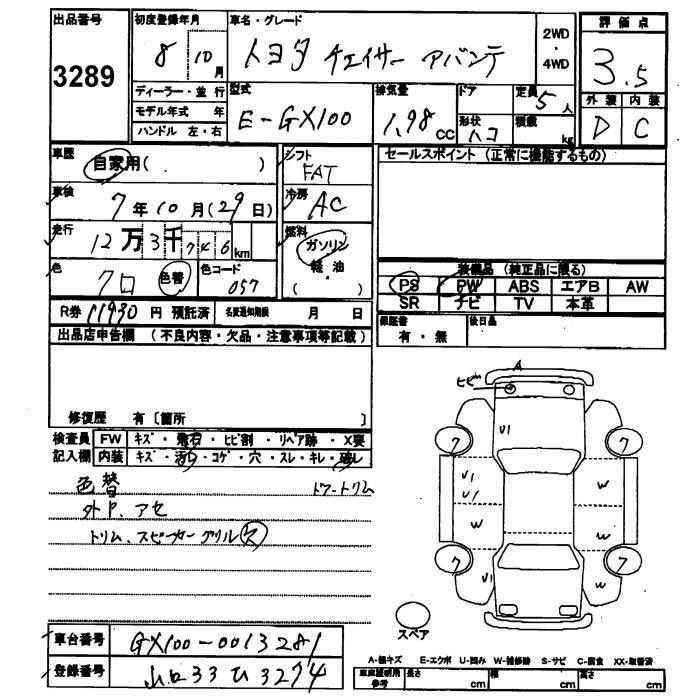 出品番号
3289
初度登録年月
8 10月
車名・グレード
トヨタ チェイサー アバンテ
2WD
・
4WD
評価点
3.5
外装 内装
D C
ディーラー・並行
モデル年式 年
ハンドル 左・右
型式
E-GX100
排気量
1.98cc
ドア
形状
ハコ
定員 5人
積載 kg
車歴
自家用( )
車検
7年10月(29日)
走行
12万3千746km
色
クロ 色替
色コード
057
シフト
FAT
冷房
AC
燃料
ガソリン
軽油
( )
セールスポイント (正常に機能するもの)
装備品 (純正品に限る)
PS PW ABS エアB AW
SR ナビ TV 本革
R券 11930円 預託済
名変通知期限 月 日
保証書
有・無
後日品
出品店申告欄 (不良内容・欠品・注意事項等記載)
修復歴 有〔箇所 〕
検査員
記入欄
FW キズ・飛石・ヒビ割・リペア跡・X要
内装 キズ・汚レ・コゲ・穴・スレ・キレ・破レ
色替 ドアートリム
外P.アセ
トリム、スピーカーグリル欠
A
ヒビ
U1
7
7
U1
U1
W
W
W
7
7
U1
W
スペア
車台番号
GX100-0013281
登録番号
山口33ひ3274
A-線キズ E-エクボ U-凹み W-補修跡 S-サビ C-腐食 XX-取替済
車庫証明用
参考
長さ cm
幅 cm
高さ cm